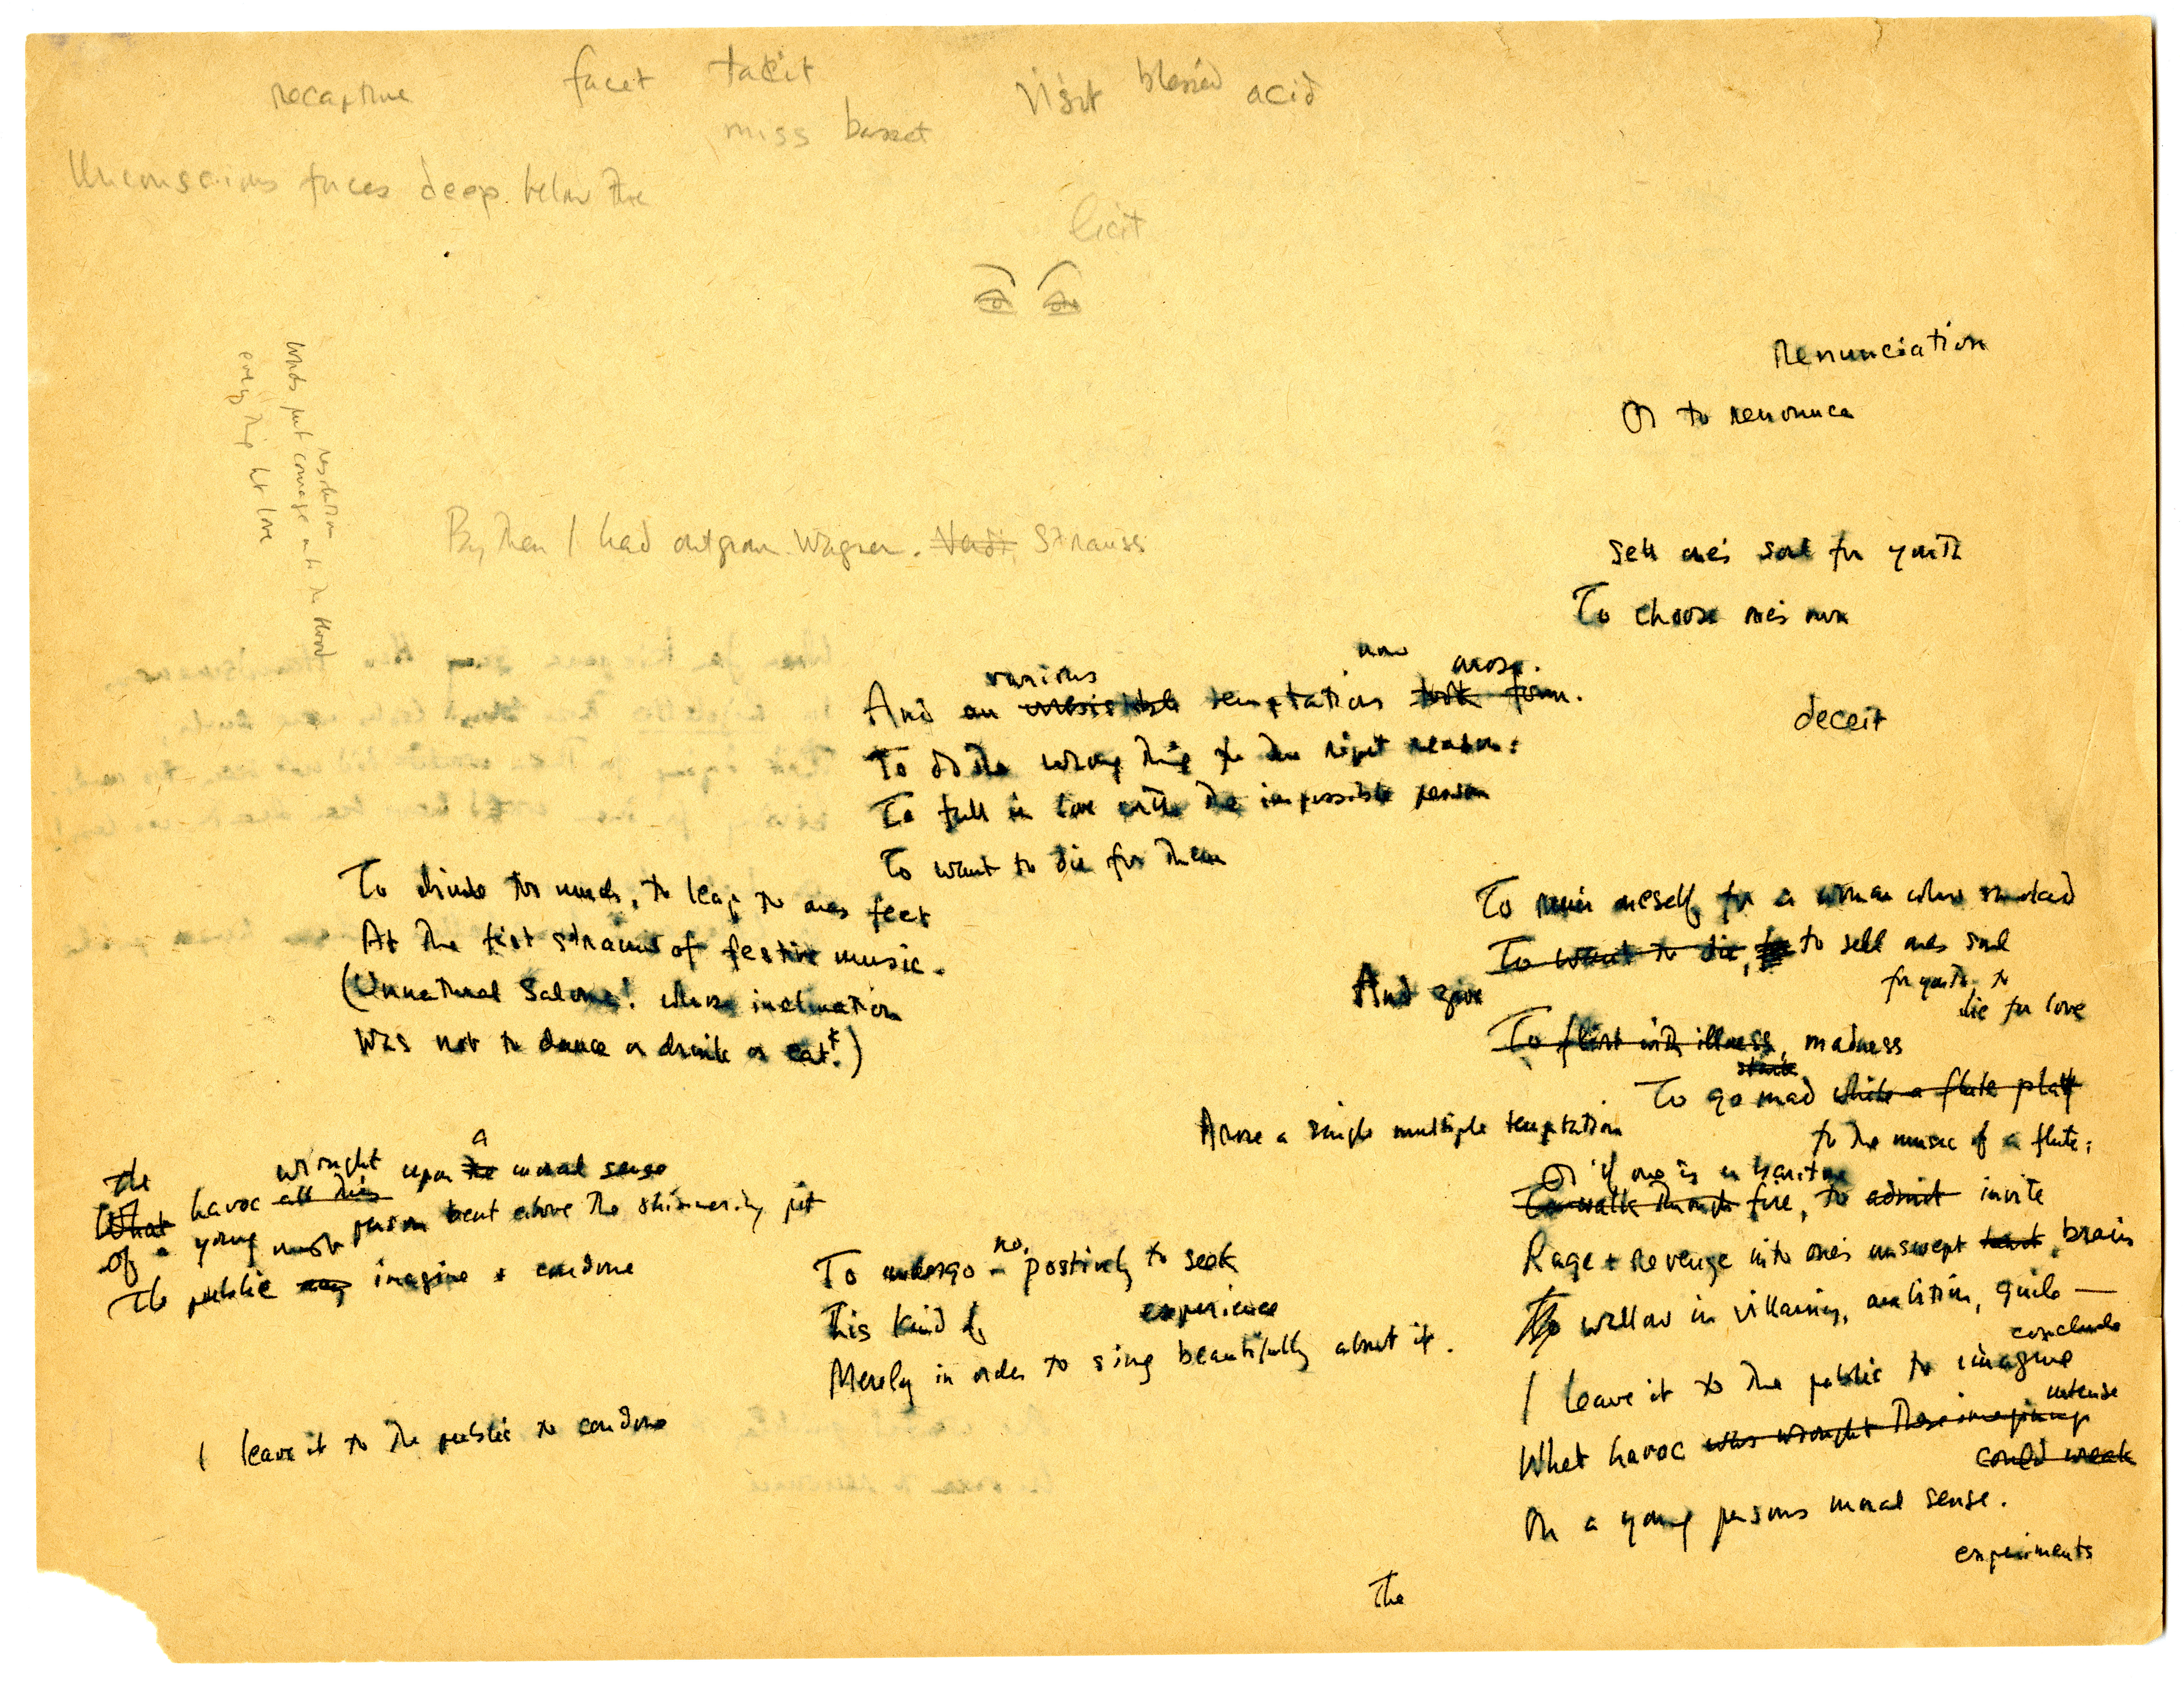 recapture facet tacit visit blessed acid
miss basset
Unconscious forces deep below the
licit
Renunciation
Or to renounce
resolution
Words put courage into the blood
every thing but love
By then I had outgrown Wagner. Verdi, Strauss
Sell one's soul for youth
To choose one's own
deceit
various now arose.
And an irresistible temptation took form.
To do the wrong thing for the right reason:
To fall in love with the impossible person
To want to die for them
To drink too much, to leap to ones feet
At the first strains of festive music.
(Unnatural Salome! whose inclination
Was not to dance or drink or eat!)
To ruin oneself for a woman who smoked
To want to die, to sell ones soul
for youth, to
die for love
And give
To flirt with illness, madness
stark
To go mad while a flute play
to the music of a flute;
Arose a single multiple temptation
Or if one is a baritone
To walk through fire, to admit invite
Rage + revenge into one's unswept heart brain
To wallow in villainy, ambition, guile —
conclude
I leave it to the public to imagine
intense
What havoc was wrought these imaginings
could wreak
On a young persons moral sense.
experiments
The
The wrought a
What havoc all this upon the moral sense
Of a young person bent above the shimmering pit
must
The public may imagine + condone
I leave it to the public to condone
no,
To undergo – postively to seek
This kind of experience
Merely in order to sing beautifully about it.